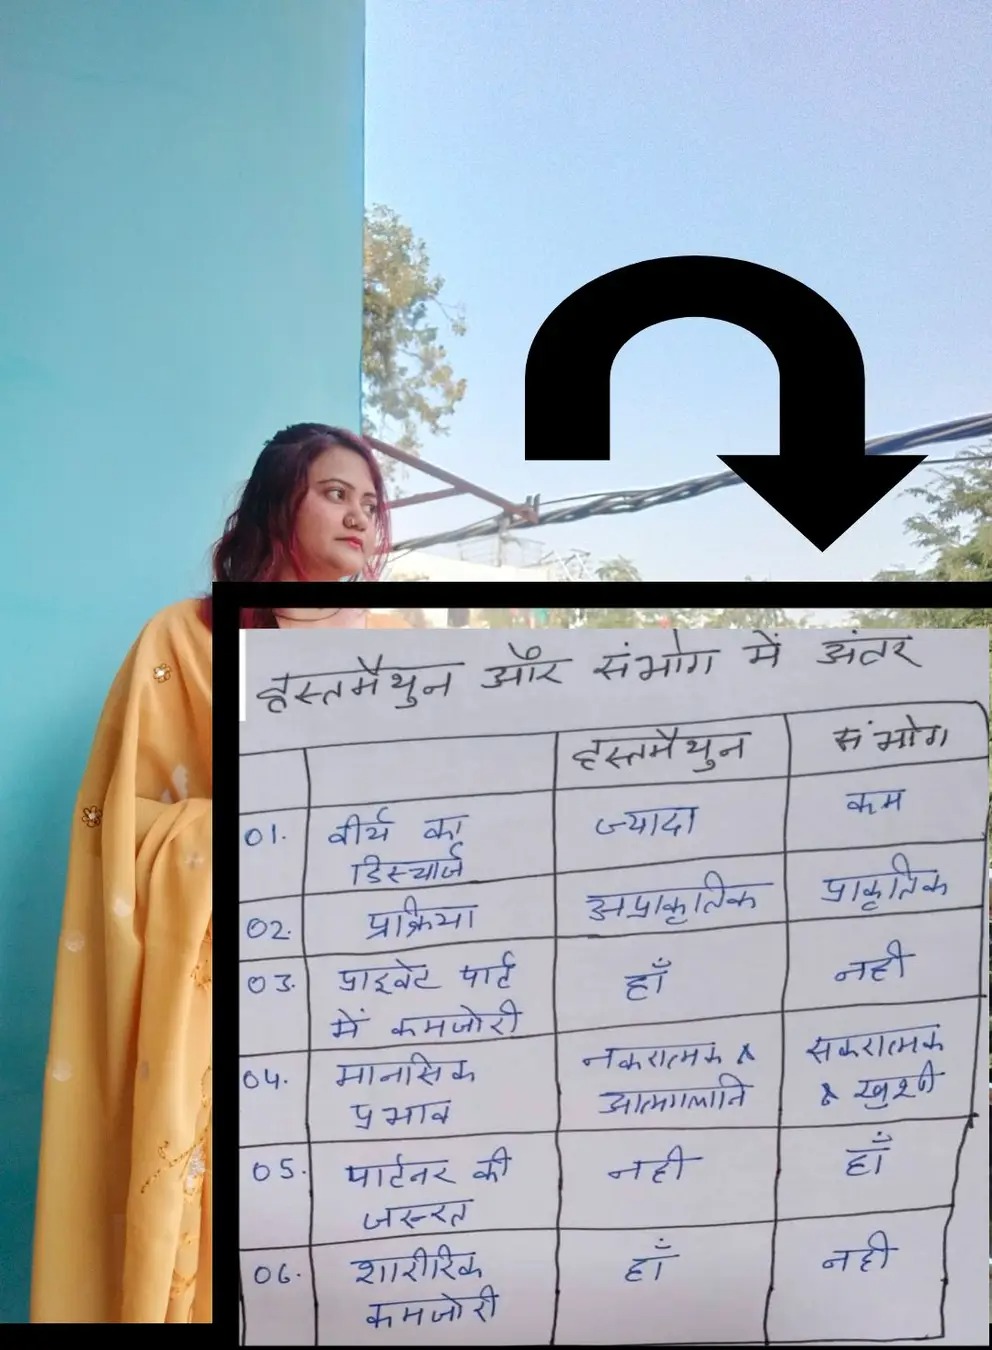 हस्तमैथुन और संभोग में अंतर
हस्तमैथुन संभोग
01. वीर्य का डिस्चार्ज ज्यादा कम
02. प्रक्रिया अप्राकृतिक प्राकृतिक
03. प्राइवेट पार्ट में कमजोरी हाँ नही
04. मानसिक प्रभाव नकरात्मक & आत्मग्लानि सकरात्मक & खुशी
05. पार्टनर की जरूरत नही हाँ
06. शारीरिक कमजोरी हाँ नही